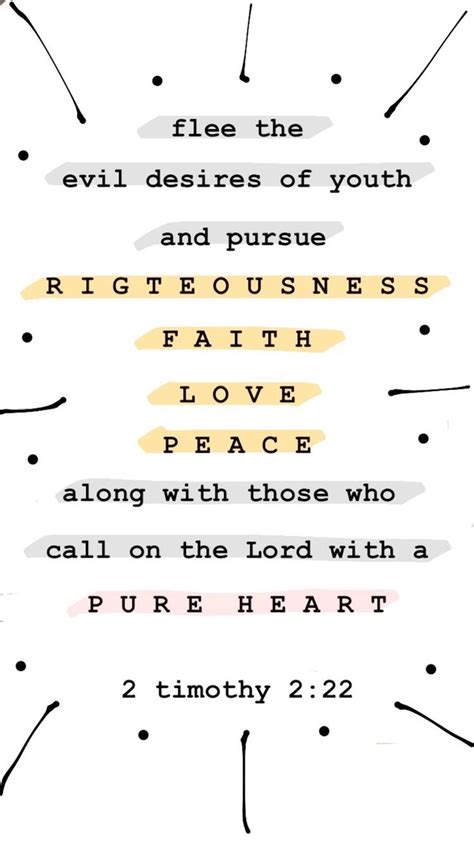 flee the
evil desires of youth
and pursue
RIGTEOUSNESS
FAITH
LOVE
PEACE
along with those who
call on the Lord with a
PURE HEART
2 timothy 2:22